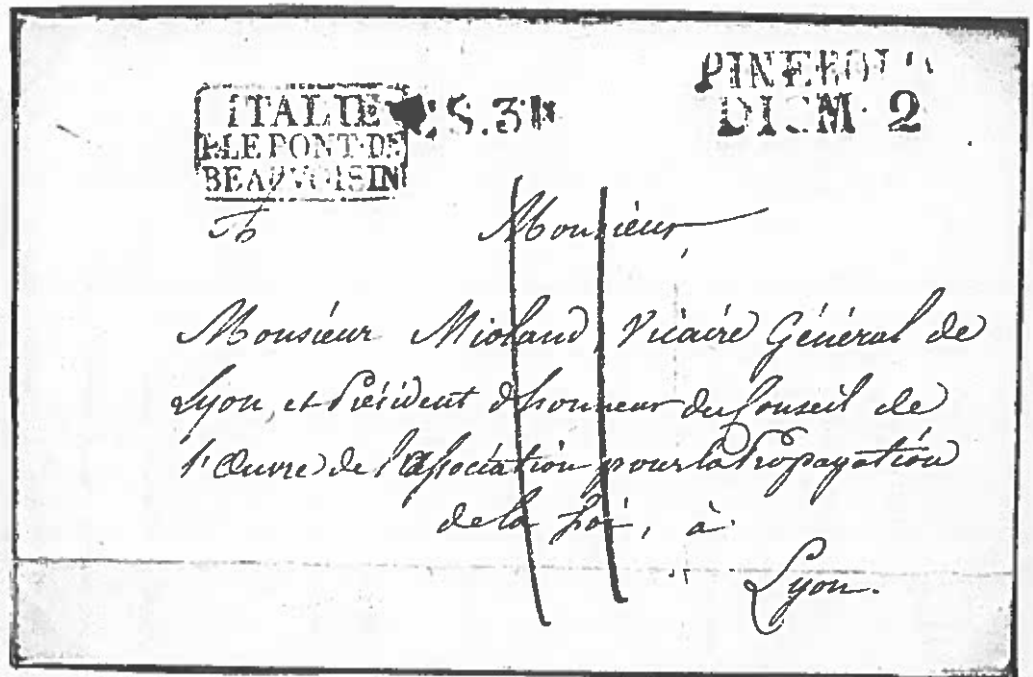 ITALIE
P. LE PONT-DE
BEAUVOISIN
.S.3
PINEROLO
DICM 2
Monsieur
Monsieur Mioland, Vicaire Général de
Lyon, et Président d'honneur du Conseil de
l'Œuvre de l'Association pour la Propagation
de la foi, à
Lyon.